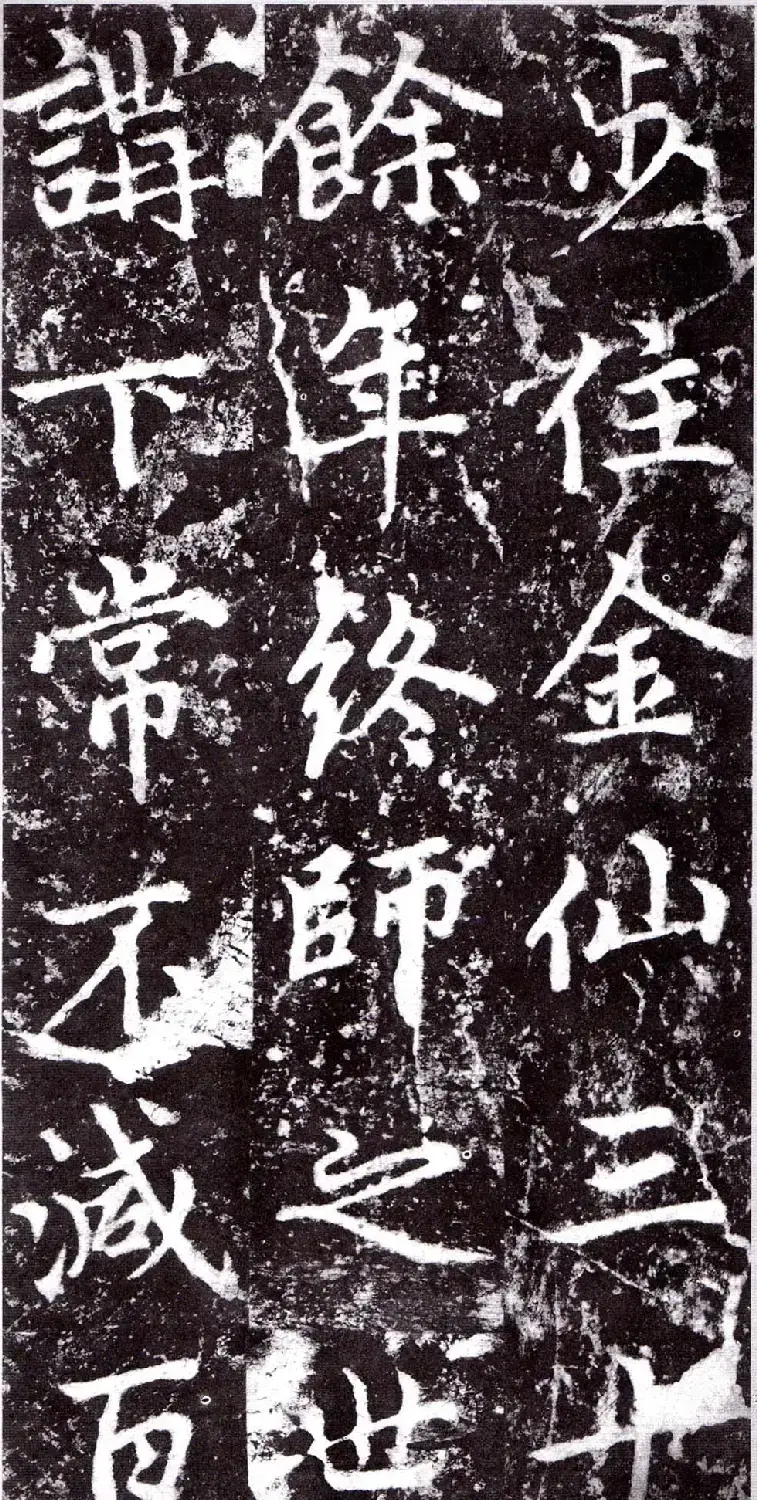 步住金仙三十
餘年終師之世
講下常不減百